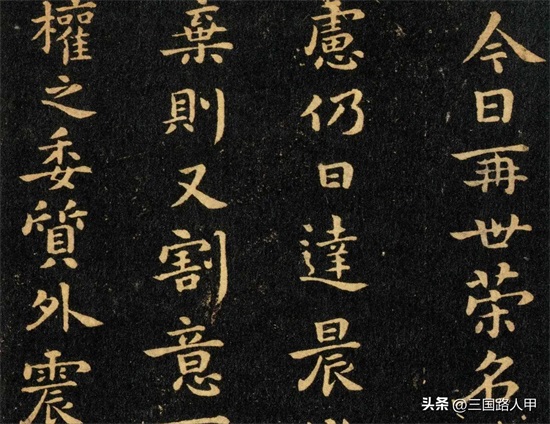 今日再世荣名
慮仍日達晨
棄則又割意
權之委質外震
头条 @三国路人甲